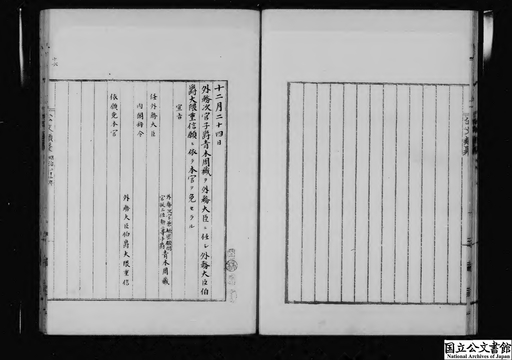 十二月二十四日
外務次官子爵青木周蔵ヲ外務大臣ニ任シ外務大臣伯
爵大隈重信願ニ依リ本官ヲ免セラル
宣旨
任外務大臣
青木周蔵
内閣辞令
依願免本官
外務大臣伯爵大隈重信
国立公文書館
National Archives of Japan